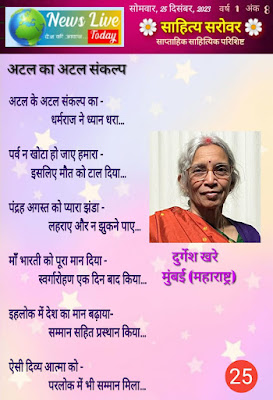 News Live
Today
देश की आवाज
सोमवार, 25 दिसंबर, 2023 वर्ष 1 अंक 8
साहित्य सरोवर
साप्ताहिक साहित्यिक परिशिष्ट
अटल का अटल संकल्प
अटल के अटल संकल्प का -
धर्मराज ने ध्यान धरा...
पर्व न खोटा हो जाए हमारा -
इसलिए मौत को टाल दिया...
पंद्रह अगस्त को प्यारा झंडा -
लहराए और न झुकने पाए...
माँ भारती को पूरा मान दिया -
स्वर्गारोहण एक दिन बाद किया...
इहलोक में देश का मान बढ़ाया-
सम्मान सहित प्रस्थान किया...
ऐसी दिव्य आत्मा को -
परलोक में भी सम्मान मिला...
दुर्गेश खरे
मुंबई (महाराष्ट्र)
25